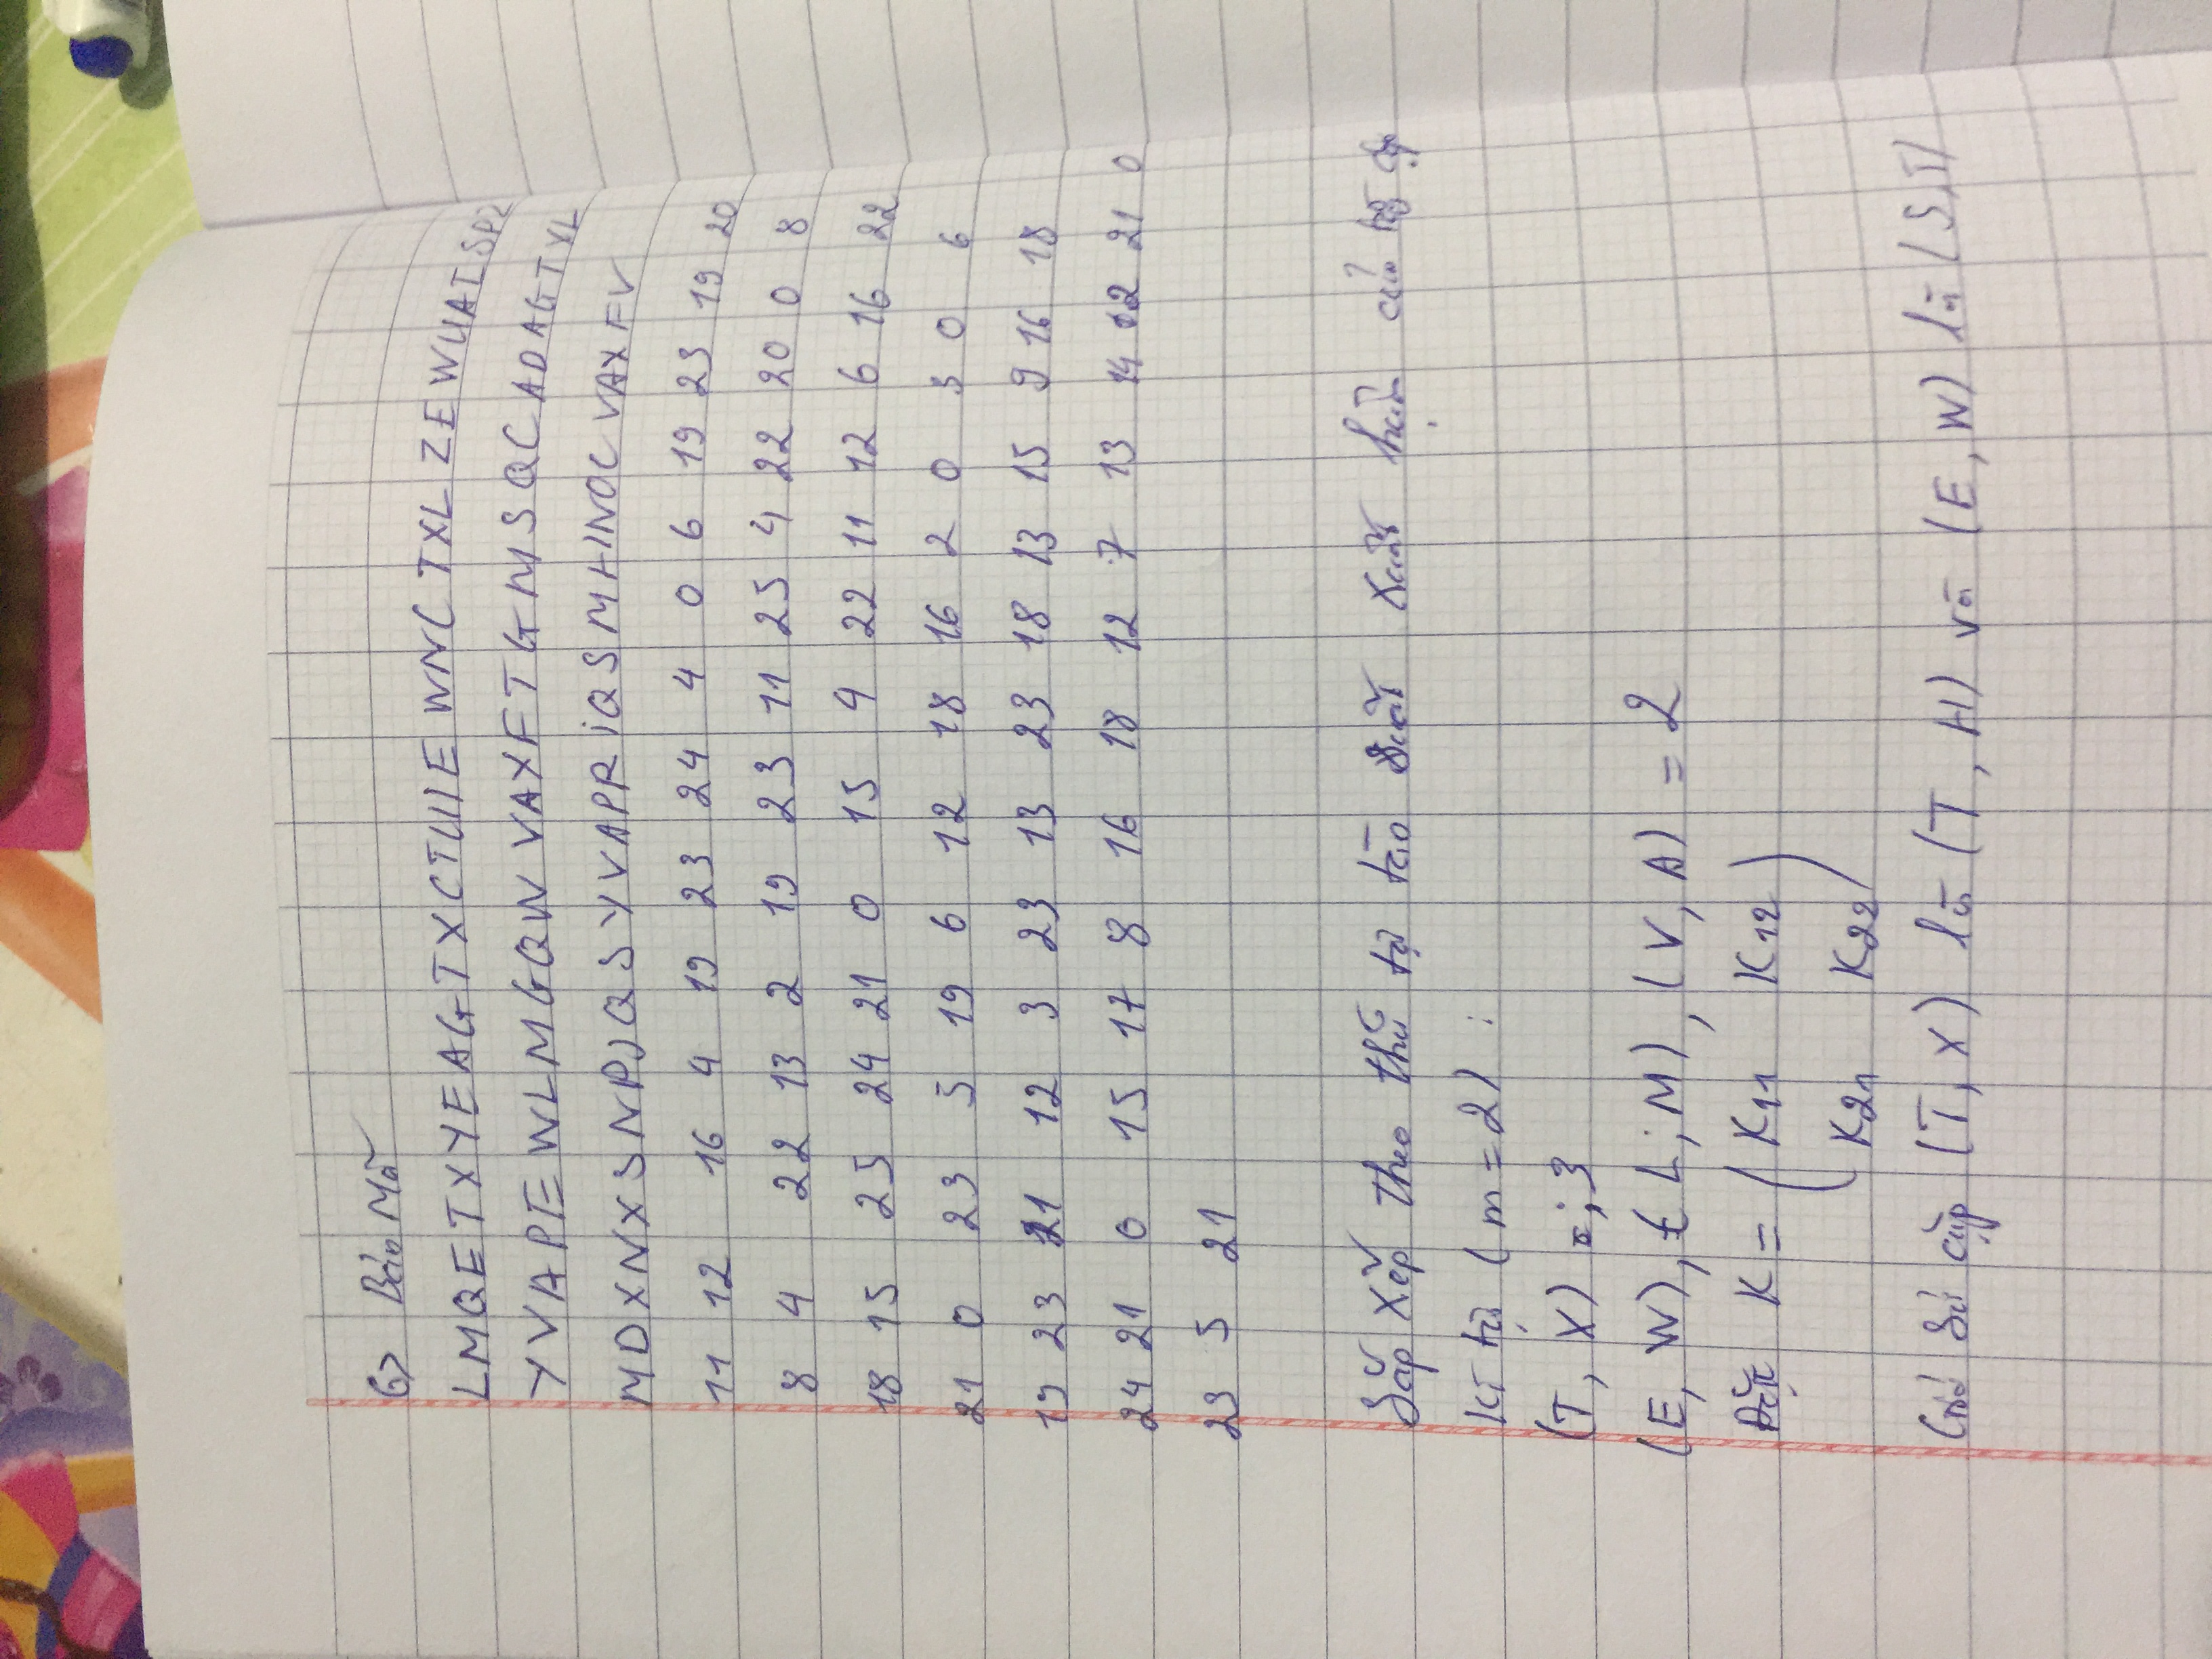 6> Bản Mã
LMQETXYEAGTXCTUIEWNCTXLZEWUAISPZ
YVAPEWLMGQWVAXFTGMSQCADAGTXL
MDXNXSNPJQSYVAPRiQSMHNOCVAXFV
11 12 16 4 19 23 24 4 0 6 19 23 19 20
8 4 22 13 2 19 23 11 25 4 22 20 0 8
18 15 25 24 21 0 15 4 22 11 12 6 16 22
21 0 23 5 19 6 12 18 16 2 0 3 0 6
19 23 21 12 3 23 13 23 18 13 15 9 16 18
24 21 0 15 17 8 16 18 12 7 13 14 02 21 0
23 5 21
Sắp xếp theo thứ tự tần suất xuất hiện của bộ cặp
kí tự (m = 2) :
(T, X) = ; 3
(E, W), ( L; M), (V, A) = 2
Đặt K = ( K11 K12
K21 K22 )
Giả sử cặp (T, X) là (T, H) và (E, W) là (S,T)